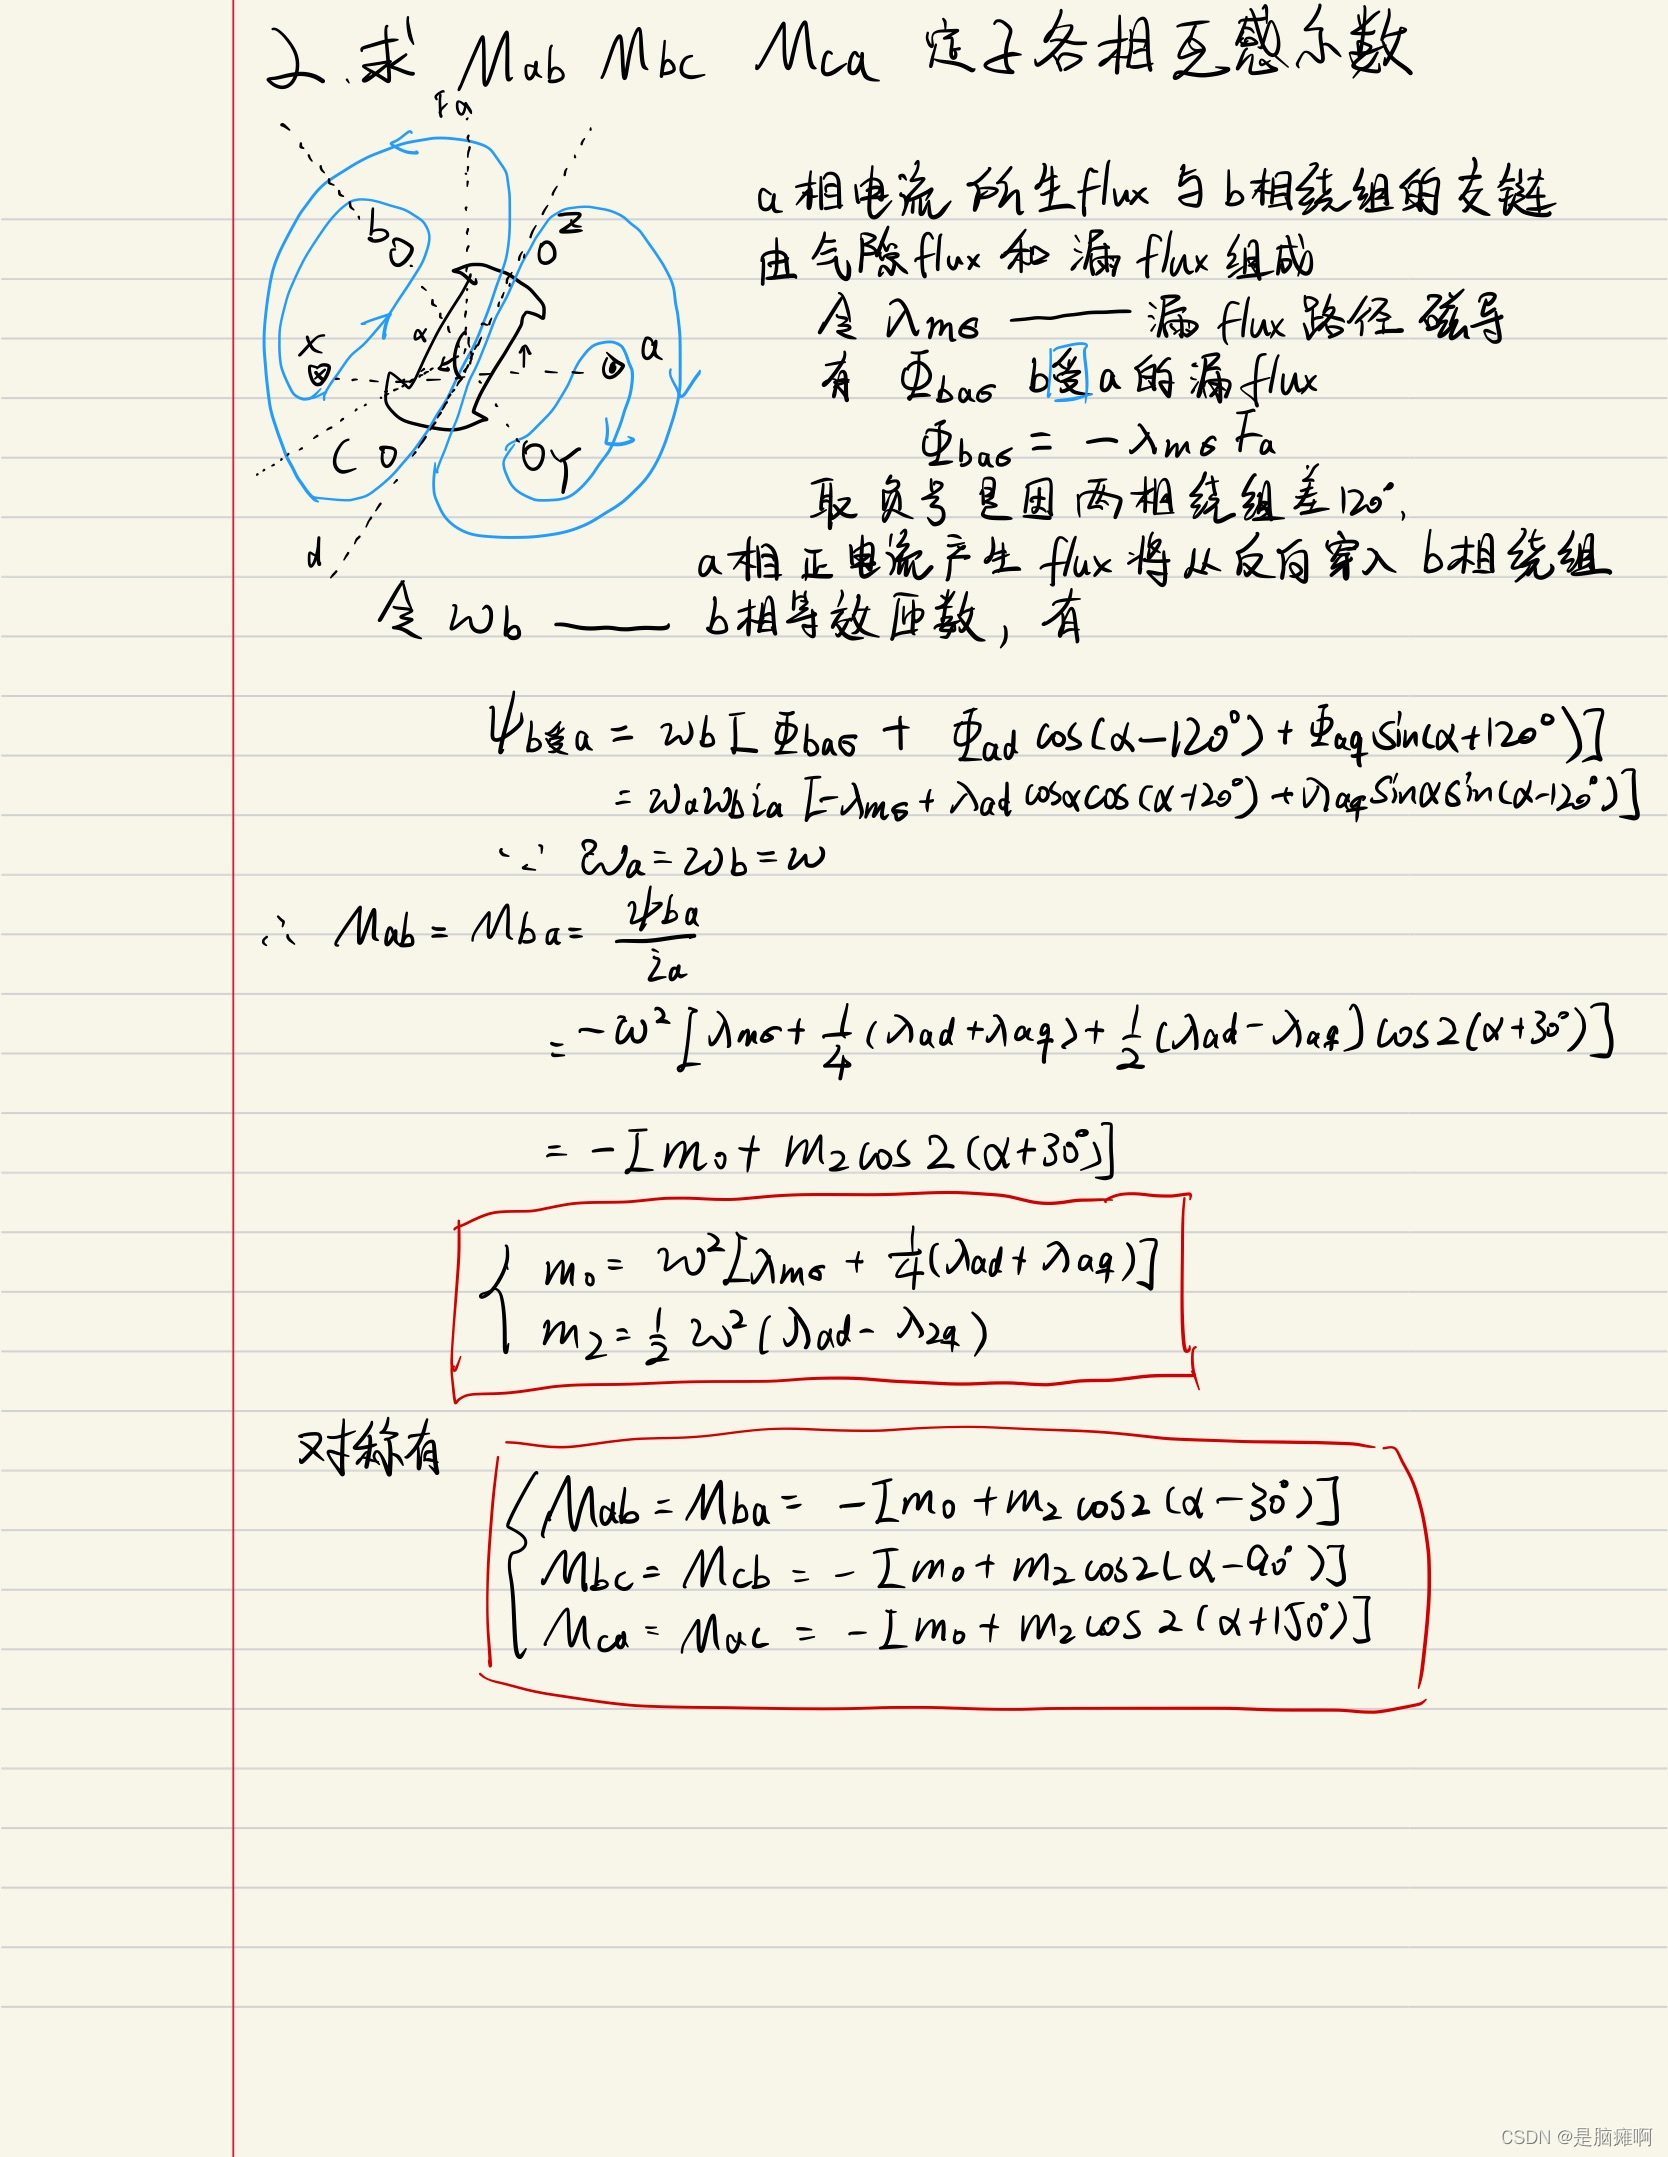 2.求 Mab Mbc Mca 定子各相互感系数
Fa
b
Z
α
x
a
C
Y
d
a相电流所生flux与b相绕组的交链
由气隙flux和漏flux组成
令 λmσ —— 漏flux路径磁导
有 Φbaσ b受a的漏flux
Φbaσ = -λmσ Fa
取负号是因两相绕组差120°,
a相正电流产生flux将从反向穿入b相绕组
令 wb —— b相等效匝数, 有
ψb受a = wb[Φbaσ + Φad cos(α-120°) + Φaq sin(α+120°)]
= wawbia [-λmσ + λad cosαcos(α-120°) + λaq sinαsin(α-120°)]
∵ wa=wb=w
∴ Mab = Mba = ψba/ia
= -w²[λmσ + 1/4(λad+λaq) + 1/2(λad-λaq)cos2(α+30°)]
= -[m0 + m2cos2(α+30°)]
m0 = w²[λmσ + 1/4(λad+λaq)]
m2 = 1/2 w²(λad-λ2q)
对称有
Mab = Mba = -[m0 + m2 cos2(α-30°)]
Mbc = Mcb = -[m0 + m2 cos2(α-90°)]
Mca = Mac = -[m0 + m2 cos2(α+150°)]
CSDN @是脑瘫啊